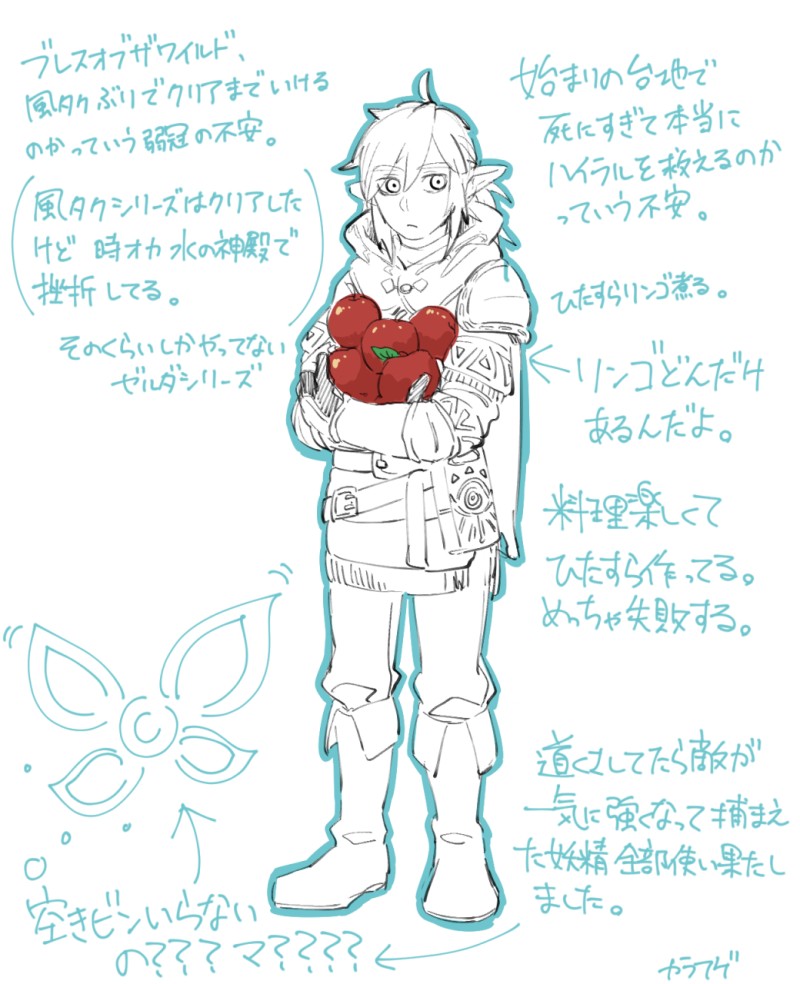 ブレスオブザワイルド、
風タクぶりでクリアまでいける
のかっていう弱冠の不安。
(風タクシリーズはクリアした
けど 時オカ 水の神殿で
挫折してる。)
そのくらいしかやってない
ゼルダシリーズ
始まりの台地で
死にすぎて本当に
ハイラルを救えるのか
っていう不安。
ひたすらリンゴ煮る。
←リンゴどんだけ
あるんだよ。
料理楽しくて
ひたすら作ってる。
めっちゃ失敗する。
道くさしてたら敵が
一気に強くなって捕まえ
た妖精全部使い果たし
ました。
空きビンいらない
の???マ????
カラアゲ